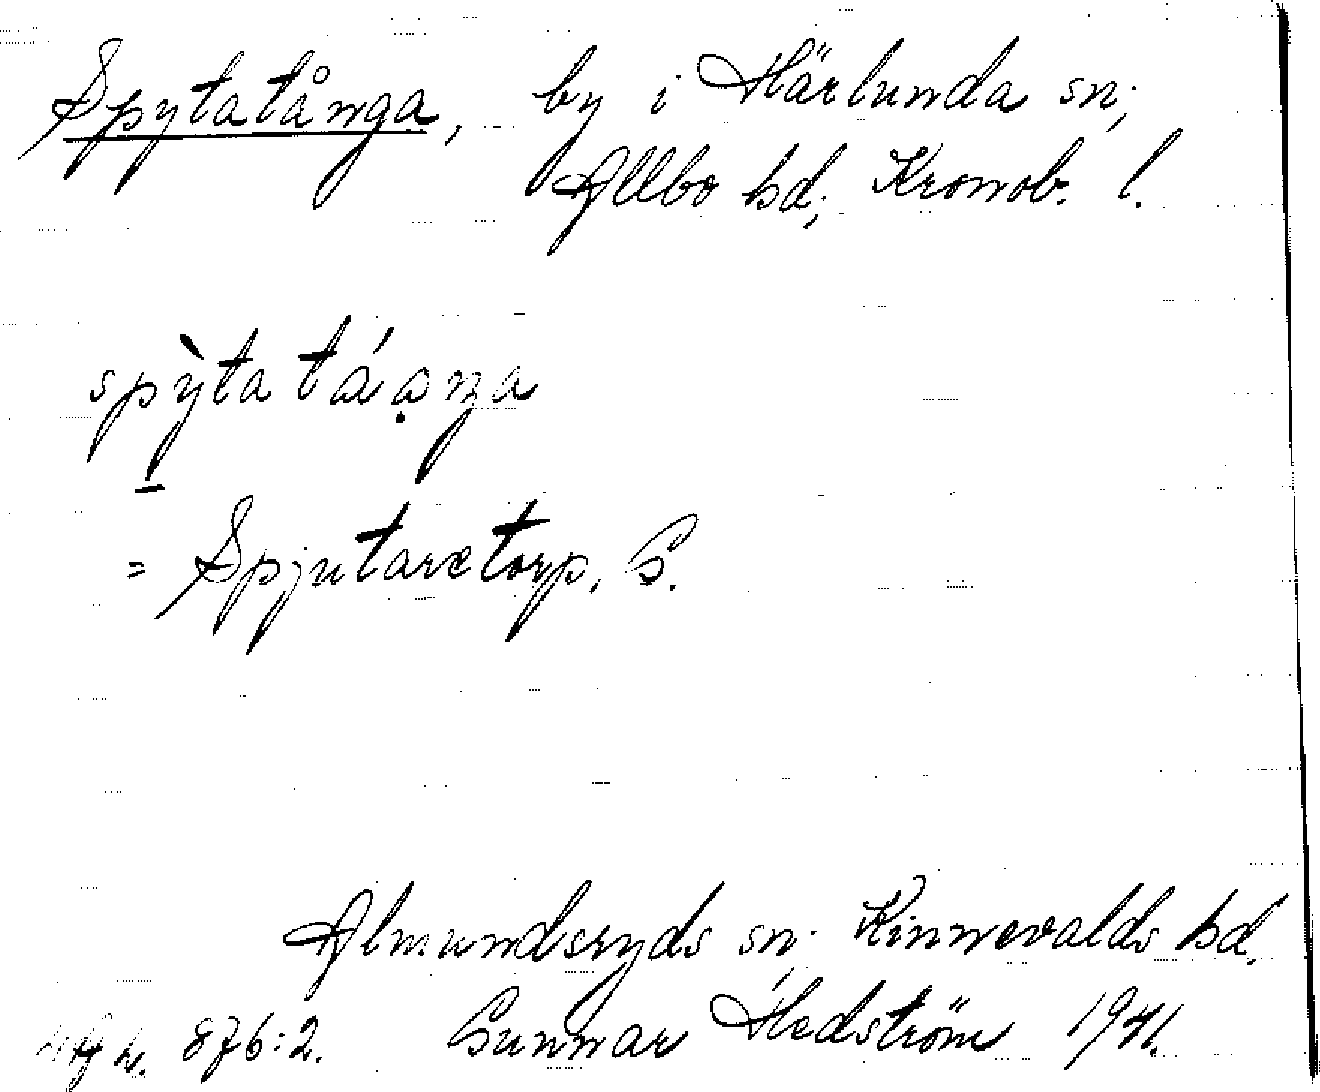 Spytatånga, by i Härlunda sn;
Allbo hd; Kronob. l.
spỳta táạŋa
= Spjutaretorp. G.
Almundsryds sn; Kinnevalds hd.
876:2. Gunnar Hedström 1941.